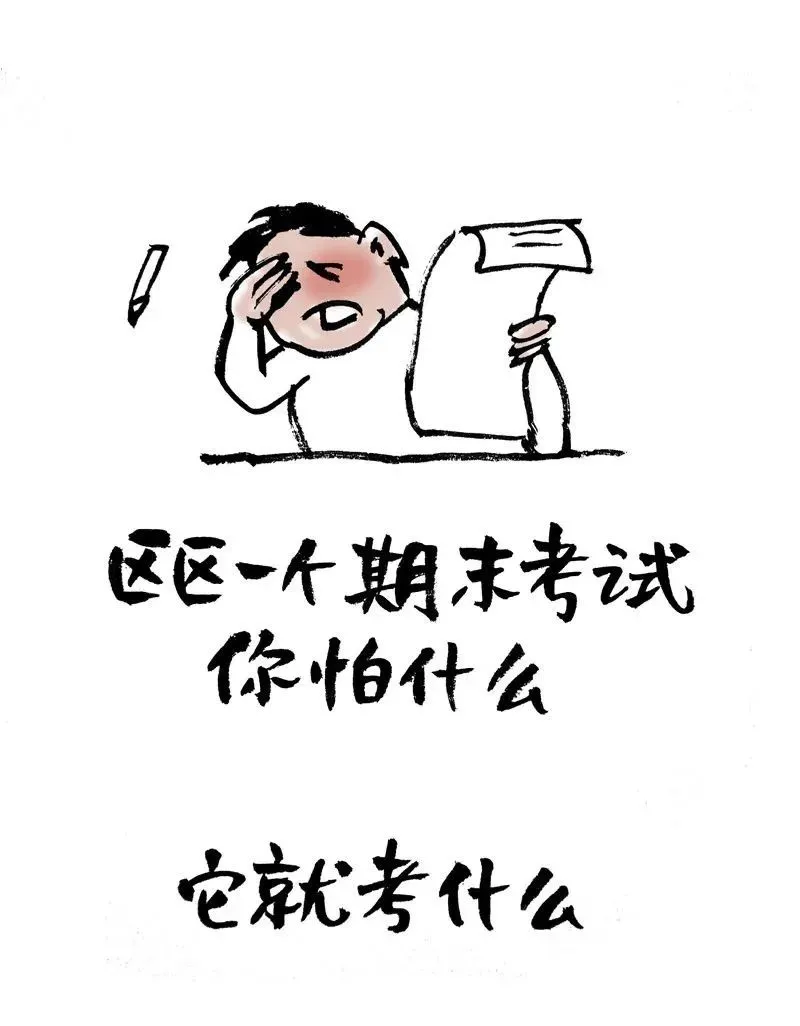 区区一个期末考试
你怕什么
它就考什么